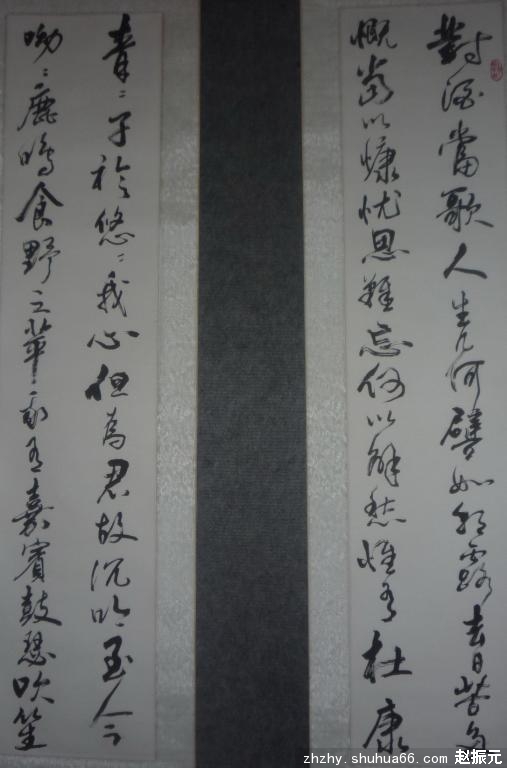 對酒當歌人生几何譬如朝露去日苦多
慨當以慷忧思難忘何以解愁惟有杜康
青々子衿悠々我心但為君故沉吟至今
呦々鹿鳴食野之苹我有嘉賓鼓瑟吹笙
zhzhy.shuhua66.com 赵振元